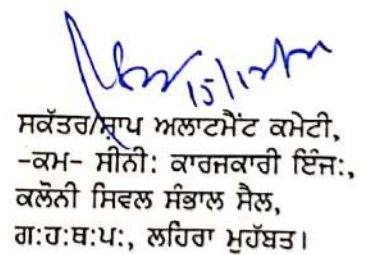 15/12/
ਸਕੱਤਰ/ਸ਼ਾਪ ਅਲਾਟਮੈਂਟ ਕਮੇਟੀ,
-ਕਮ- ਸੀਨੀ: ਕਾਰਜਕਾਰੀ ਇੰਜ:,
ਕਲੌਨੀ ਸਿਵਲ ਸੰਭਾਲ ਸੈਲ,
ਗ:ਹ:ਥ:ਪ:, ਲਹਿਰਾ ਮੁਹੱਬਤ।